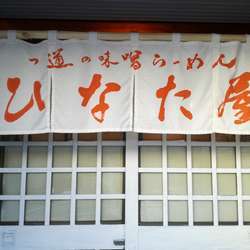 つ道の味噌らーめん
ひなた屋